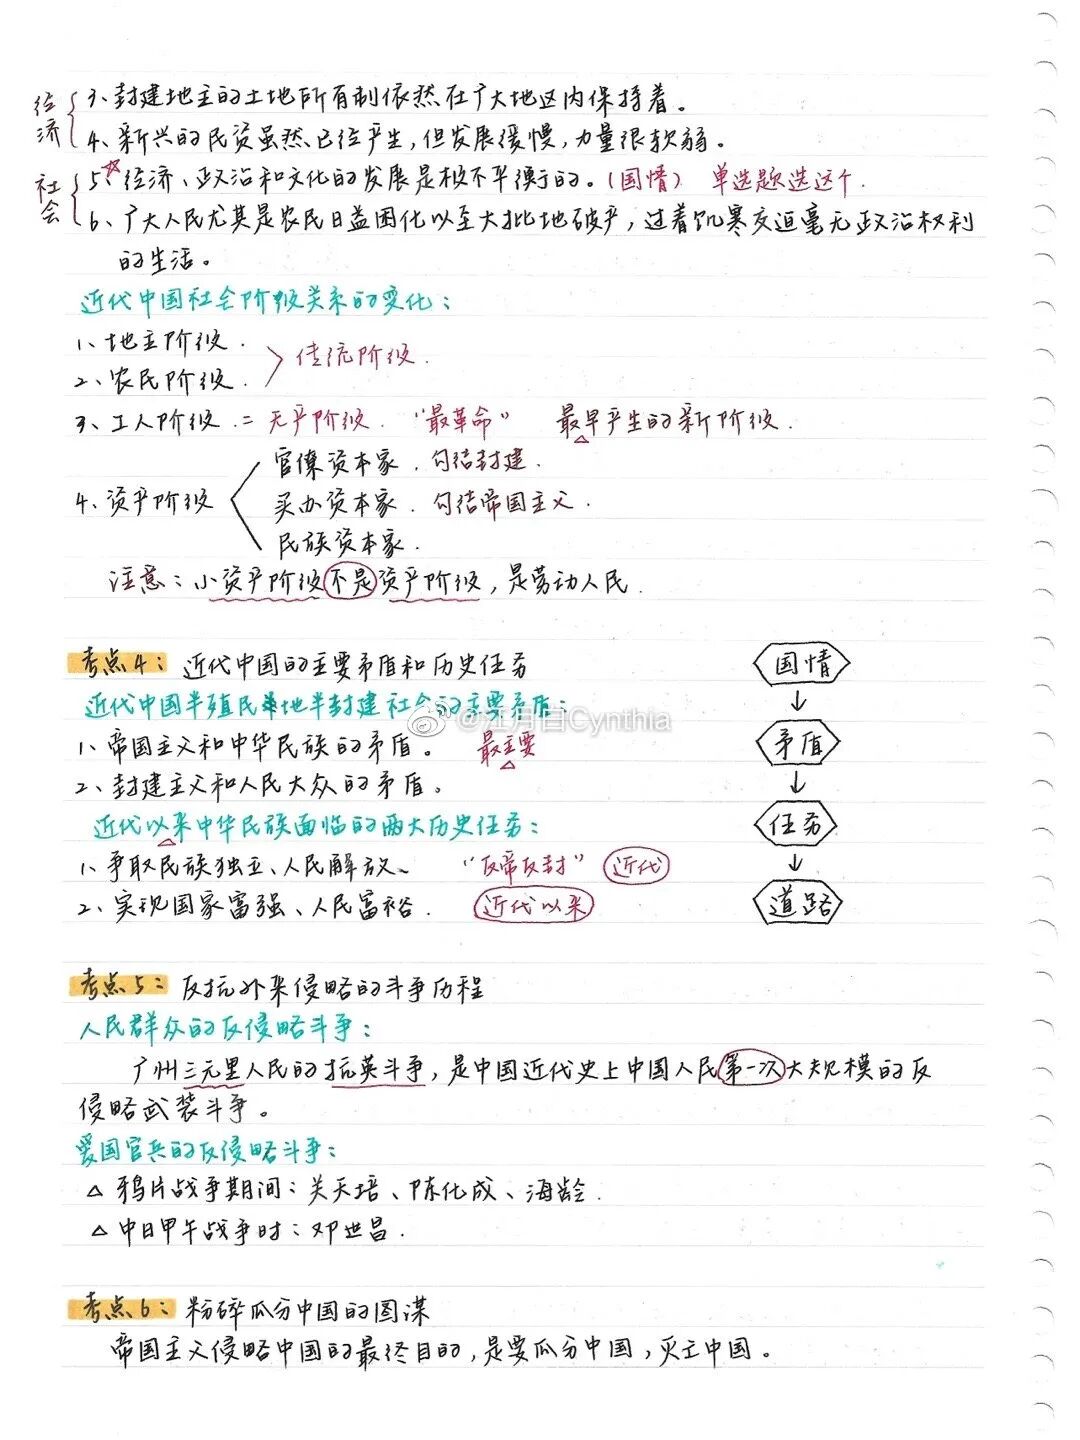 经济 3、封建地主的土地所有制依然在广大地区内保持着。
4、新兴的民资虽然已经产生，但发展缓慢，力量很软弱。
社会 5、☆经济、政治和文化的发展是极不平衡的。（国情） 单选题选这个.
6、广大人民尤其是农民日益困化以至大批地破产，过着饥寒交迫毫无政治权利
的生活。
近代中国社会阶级关系的变化：
1、地主阶级.
2、农民阶级. 传统阶级.
3、工人阶级 = 无产阶级. “最革命” 最早产生的新阶级.
官僚资本家. 勾结封建.
4、资产阶级 买办资本家. 勾结帝国主义.
民族资本家.
注意：小资产阶级不是资产阶级，是劳动人民.
考点4：近代中国的主要矛盾和历史任务
国情
近代中国半殖民地半封建社会的主要矛盾：
@江月白Cynthia
1、帝国主义和中华民族的矛盾。 最主要
矛盾
2、封建主义和人民大众的矛盾。
近代以来中华民族面临的两大历史任务：
任务
1、争取民族独立、人民解放、 “反帝反封” 近代
2、实现国家富强、人民富裕. 近代以来
道路
考点5：反抗外来侵略的斗争历程
人民群众的反侵略斗争：
广州三元里人民的抗英斗争，是中国近代史上中国人民第一次大规模的反
侵略武装斗争。
爱国官兵的反侵略斗争：
△ 鸦片战争期间：关天培、陈化成、海龄.
△ 中日甲午战争时：邓世昌.
考点6：粉碎瓜分中国的图谋
帝国主义侵略中国的最终目的，是要瓜分中国，灭亡中国。